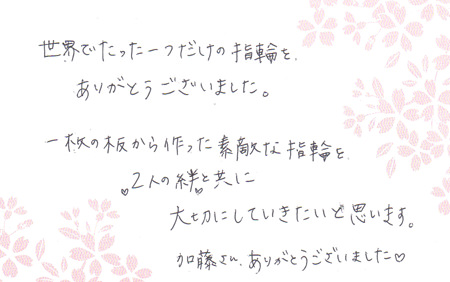 世界でたった一つだけの指輪を、
ありがとうございました。
一枚の板から作った素敵な指輪を、
♡2人の絆♡と共に
大切にしていきたいと思います。
加藤さん、ありがとうございました♡